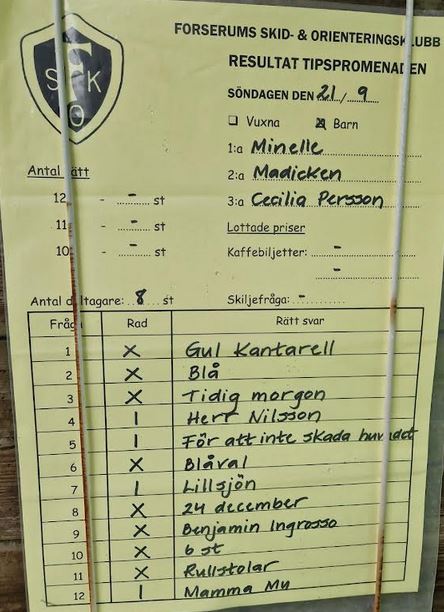 FORSERUMS SKID- & ORIENTERINGSKLUBB
RESULTAT TIPSPROMENADEN
SÖNDAGEN DEN 21/9
Vuxna ☒ Barn
1:a Minelle
2:a Madicken
3:a Cecilia Persson
Antal rätt
12 - - st
11 - - st
10 - - st
Lottade priser
Kaffebiljetter: -
-
Antal deltagare: 8 st Skiljefråga: -
Fråga Rad Rätt svar
1 X Gul Kantarell
2 X Blå
3 X Tidig morgon
4 1 Herr Nilsson
5 1 För att inte skada huvudet
6 X Blåval
7 1 Lillsjön
8 X 24 december
9 X Benjamin Ingrosso
10 X 6 st
11 X Rullstolar
12 1 Mamma Mu